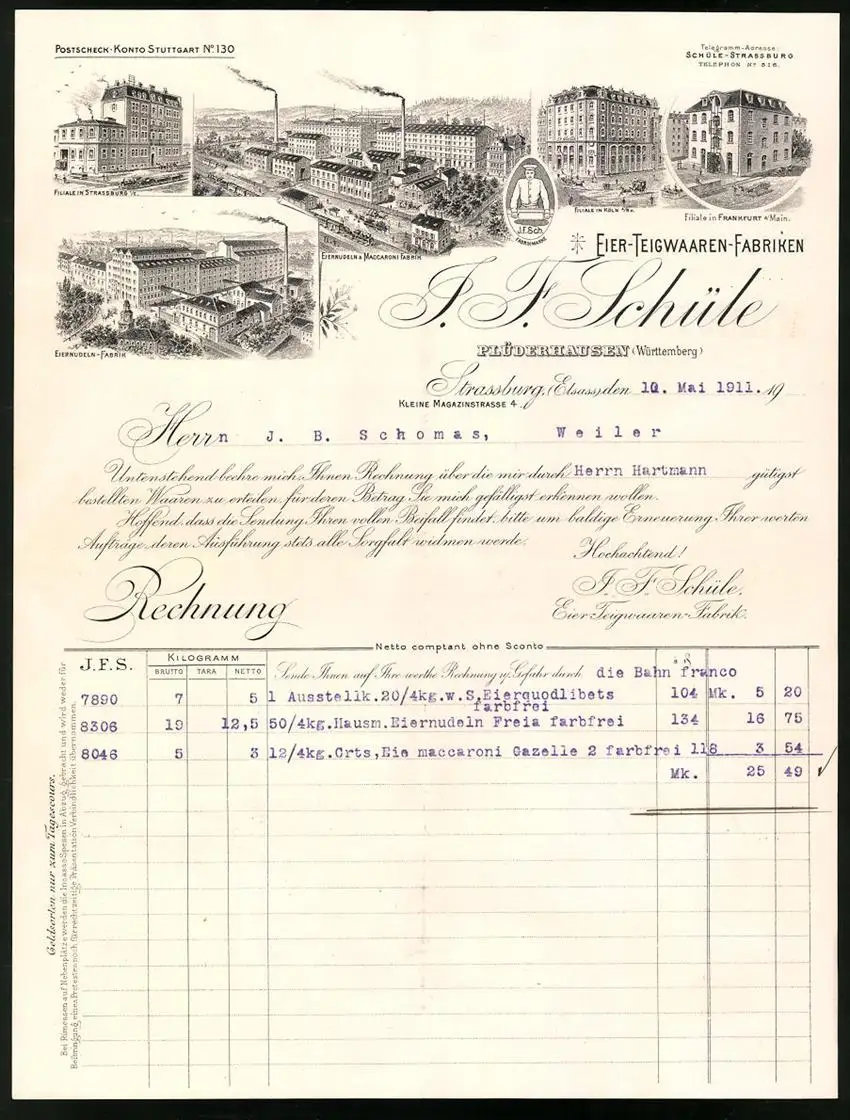 POSTSCHECK-KONTO STUTTGART No. 130
Telegramm-Adresse:
SCHÜLE-STRASSBURG
TELEPHON No 516.
FILIALE IN STRASSBURG i/E.
FILIALE IN KÖLN a/Rh.
Filiale in FRANKFURT a/Main.
J.F.Sch.
FABRIKMARKE
EIERNUDELN & MACCARONI FABRIK
EIERNUDELN-FABRIK
EIER-TEIGWAAREN-FABRIKEN
J. F. Schüle
PLÜDERHAUSEN (Württemberg)
Strassburg, (Elsass) den 10. Mai 1911. 19
KLEINE MAGAZINSTRASSE 4.
Herrn J. B. Schomas, Weiler
Untenstehend beehre mich Ihnen Rechnung über die mir durch Herrn Hartmann gütigst
bestellten Waaren zu erteilen, für deren Betrag Sie mich gefälligst erkennen wollen.
Hoffend, dass die Sendung Ihren vollen Beifall findet, bitte um baldige Erneuerung Ihrer werten
Aufträge, deren Ausführung stets alle Sorgfalt widmen werde.
Hochachtend!
J. F. Schüle.
Eier-Teigwaaren-Fabrik.
Rechnung
Netto comptant ohne Sconto
J.F.S. KILOGRAMM
BRUTTO TARA NETTO
Sende Ihnen auf Ihre werthe Rechnung u. Gefahr durch die Bahn franco
7890 7 5 1 Ausstellk.20/4kg.w.S.Eierquodlibets 104 Mk. 5 20
farbfrei
8306 19 12,5 50/4kg.Hausm.Eiernudeln Freia farbfrei 134 16 75
8046 5 3 12/4kg.Orts,Eie maccaroni Gazelle 2 farbfrei 118 3 54
Mk. 25 49
Geldsorten nur zum Tagescours.
Bei Rimessen auf Nebenplätze werden die Incasso Spesen in Abzug gebracht und wird weder für
Beibringung eines Protestes noch für rechtzeitige Präsentation Verbindlichkeit übernommen.